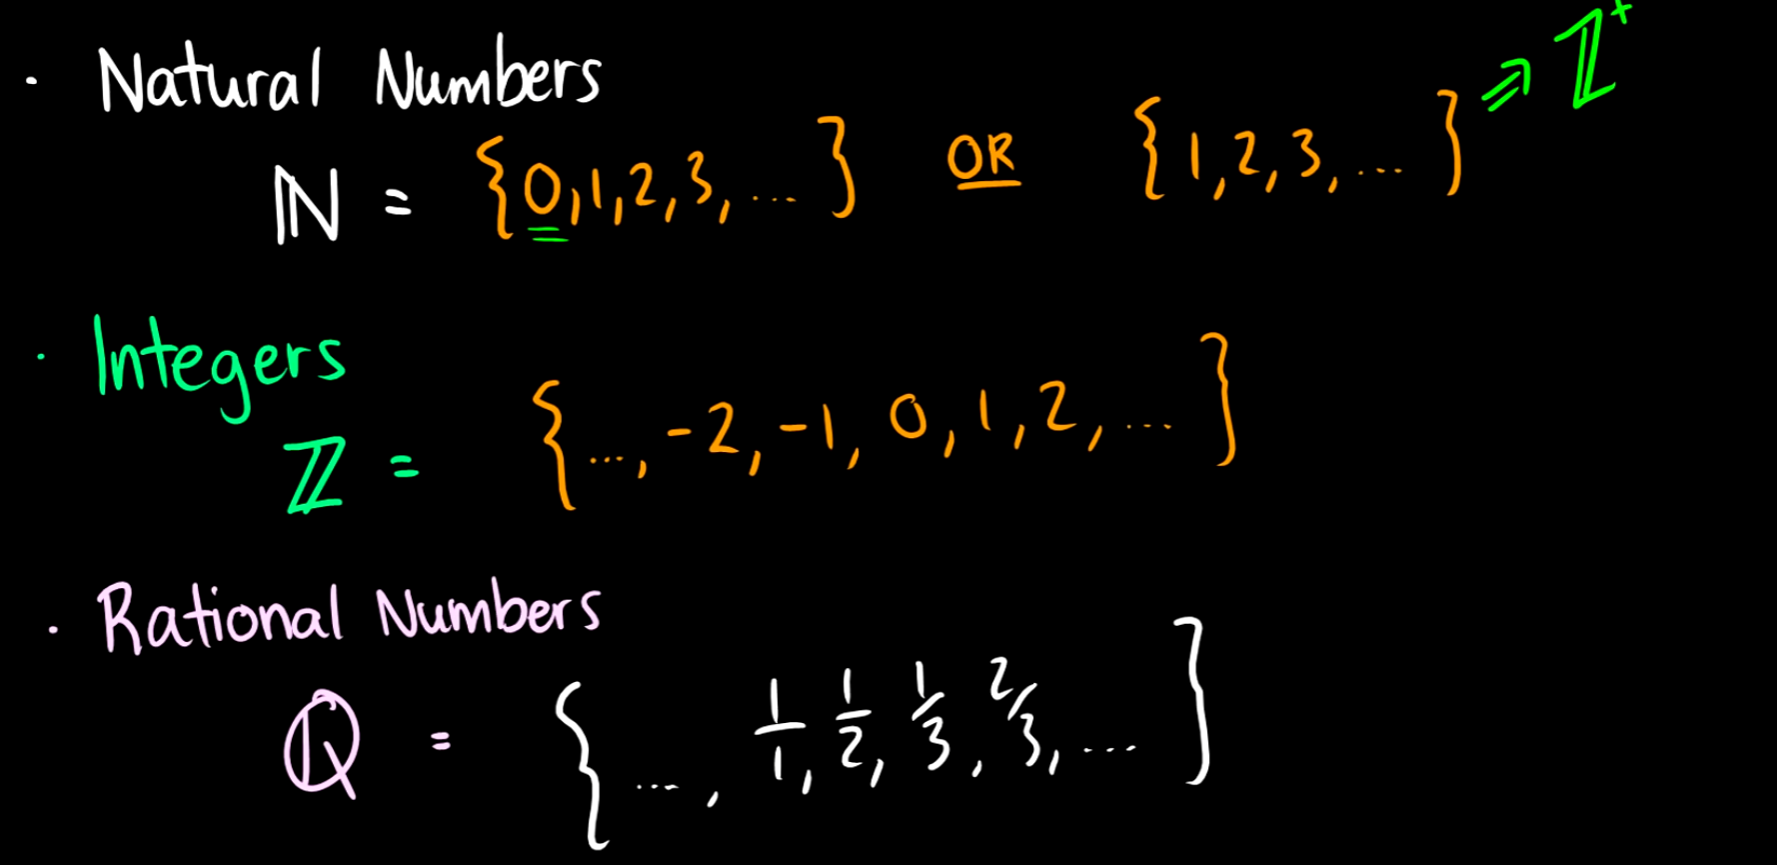 · Natural Numbers
ℕ = {0,1,2,3,...} OR {1,2,3,...} ⇒ ℤ⁺
· Integers
ℤ = {...,-2,-1,0,1,2,...}
· Rational Numbers
ℚ = {..., 1/1, 1/2, 1/3, 2/3, ...}